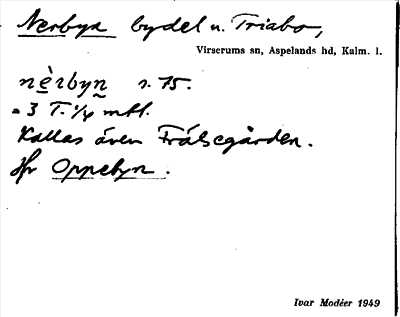 Nerbyn bydel u. Triabo,
Virserums sn, Aspelands hd, Kalm. l.
nè̱rbyn̰ s. 75.
= 3 T. 1/4 mtl.
Kallas även Frälsegården.
Jfr Oppebyn.
Ivar Modéer 1949